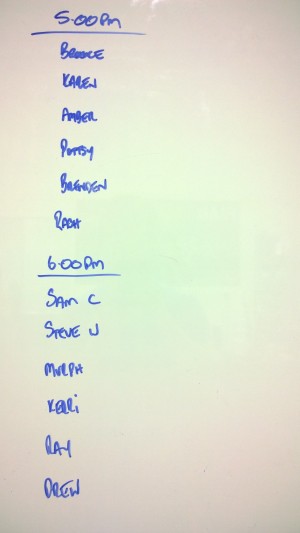 5:00PM
BROOKE
KAREN
AMBER
POTTSY
BRENDEN
6:00PM
SAM C
STEVE W
MURPH
KERRI
RAY
DREW